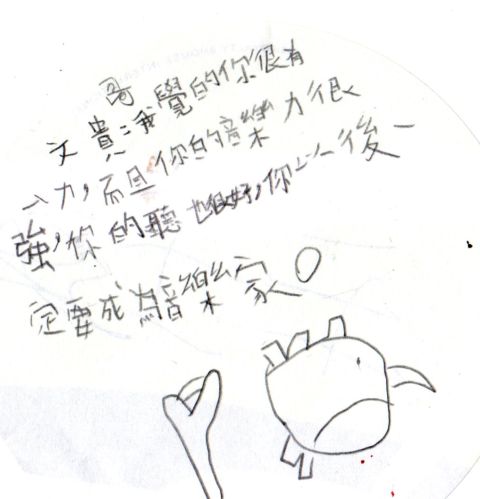 哥
文貴:我覺的你很有
力,而且你的音樂力很
強,你的聽也很好,你以後一
定要成為音樂家。